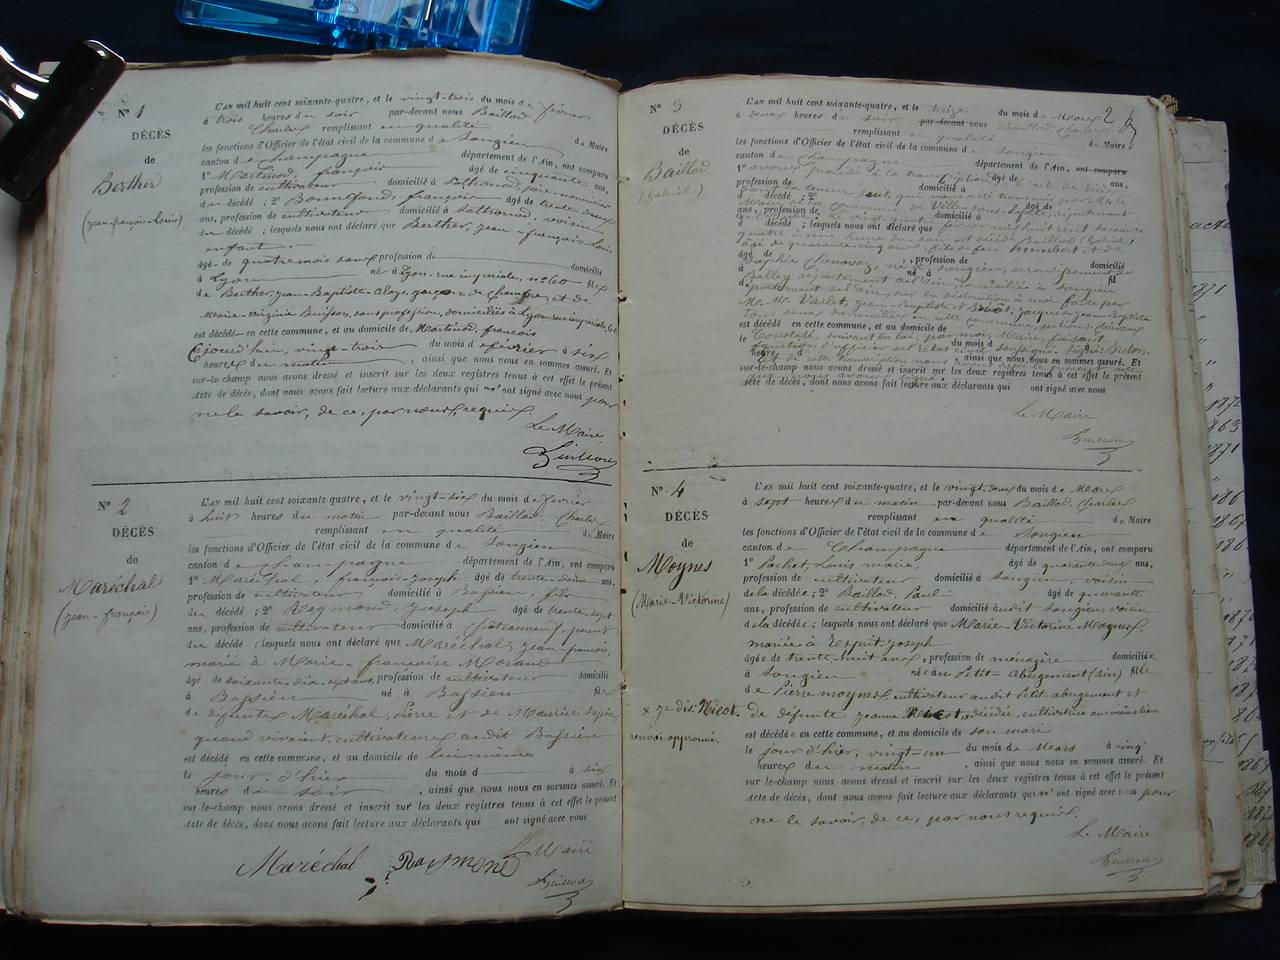 N° 1
DÉCÈS
de
Berther
(jean-françois-Louis)
L'AN mil huit cent soixante-quatre, et le vingt-trois du mois de février
à trois heures du soir par-devant nous Baillod
Charles remplissant en qualité de Maire
les fonctions d'Officier de l'état civil de la commune de Songieu
canton de Champagne département de l'Ain, ont comparu
1° Martinod, françois âgé de cinquante ans,
profession de cultivateur domicilié à Sothonod, père nourricier
du décédé ; 2° Bonnefond, françois âgé de trente-deux
ans, profession de cultivateur domicilié à Sothonod, voisin
du décédé ; lesquels nous ont déclaré que Berther, jean-françois-Louis
enfant
âgé de quatre mois sans profession de domicilié
à Lyon né à Lyon, rue impériale, no 60 fils
de Berther, jean-Baptiste-Aloys, garçon de chambre, et de
Marie-Virginie Buisson, sans profession, domiciliés à Lyon rue impériale, 60
est décédé en cette commune, et au domicile de Martinod, françois
Cejourd'hui, vingt-trois du mois de février à six
heures du matin, ainsi que nous nous en sommes assuré. Et
sur-le-champ nous avons dressé et inscrit sur les deux registres tenus à cet effet le présent
Acte de décès, dont nous avons fait lecture aux déclarants qui n'ont signé avec nous pour
ne le savoir, de ce, par nous, requis.
Le Maire
N° 2
DÉCÈS
de
Maréchal
(jean-françois)
L'AN mil huit cent soixante-quatre, et le vingt-six du mois de février
à huit heures du matin par-devant nous Baillod, Charles
remplissant en qualité de Maire
les fonctions d'Officier de l'état civil de la commune de Songieu
canton de Champagne département de l'Ain, ont comparu
1° Maréchal, françois-joseph âgé de trente-deux ans,
profession de cultivateur domicilié à Bassieu, fils
du décédé ; 2° Reymond, joseph âgé de trente-sept
ans, profession de cultivateur domicilié à Châteauneuf, parent
du décédé ; lesquels nous ont déclaré que Maréchal, jean-françois,
marié à Marie-françoise Morand
âgé de soixante-dix-sept ans, profession de cultivateur domicilié
à Bassieu né à Bassieu fils
de défunts Maréchal, Pierre et de Maurice Sapin,
quand vivaient, cultivateurs audit Bassieu
est décédé en cette commune, et au domicile de lui-même
le jour d'hier du mois d à six
heures du soir, ainsi que nous nous en sommes assuré. Et
sur-le-champ nous avons dressé et inscrit sur les deux registres tenus à cet effet le présent
Acte de décès, dont nous avons fait lecture aux déclarants qui ont signé avec nous
Le Maire
Maréchal Raymond
N° 3
DÉCÈS
de
Baillod
(Gabriel)
2
L'AN mil huit cent soixante-quatre, et le treize du mois de Mars
à deux heures du soir par-devant nous Baillod, Charles
remplissant en qualité de Maire
les fonctions d'Officier de l'état civil de la commune de Songieu
canton de Champagne département de l'Ain, ont comparu
1° avons procédé à la transcription de l'acte de décès âgé de ans,
profession de dont la teneur suit, qui nous a été transmis par Mr le domicilié à
d décédé ; 2° Maire de la commune de Ville-sous-la-Ferté, département âgé de
ans, profession de Le vingt-quatre février mil huit cent soixante domicilié à
d décédé ; lesquels nous ont déclaré que
quatre à une heure du soir est décédé Baillod (Gabriel)
âgé de quarante-cinq ans, fils de feu humbert et de
âgé de , profession de domicilié
Sophie Chenavaz, né à Songieu, arrondissement de
à né à fil
Belley département de l'ain, domicilié à Songieu
département de l'ain, sur la déclaration à moi faite par
M. M. Varlet, jean-Baptiste et Briot, jacques-jean-Baptiste
tous deux domiciliés en cette commune, section de Clairvaux
est décédé en cette commune, et au domicile de
Constaté, suivant la loi, par moi, Maire, faisant
le du mois d
fonction d'officier de l'état civil soussigné. Signé: Breton.
heures d , ainsi que nous nous en sommes assuré. Et
Et de cette transcription nous avons
sur-le-champ nous avons dressé et inscrit sur les deux registres tenus à cet effet le présent
Acte de décès, dont nous avons fait lecture aux déclarants qui ont signé avec nous
Le Maire
N° 4
DÉCÈS
de
Moynes
(Marie-Victorine)
L'AN mil huit cent soixante-quatre, et le vingt-deux du mois de Mars
à sept heures du matin par-devant nous Baillod, Charles
remplissant en qualité de Maire
les fonctions d'Officier de l'état civil de la commune de Songieu
canton de Champagne département de l'Ain, ont comparu
1° Pochet, Louis marie, âgé de quarante-deux ans,
profession de cultivateur domicilié à Songieu, voisin
de la décédée ; 2° Baillod, Paul âgé de quarante
ans, profession de cultivateur domicilié audit Songieu, voisin
de la décédée ; lesquels nous ont déclaré que Marie-Victorine Moynes,
mariée à Esprit-joseph
âgée de trente-huit ans, profession de ménagère domiciliée
à Songieu née au Petit-Abergement (ain) fille
de Pierre moynes cultivateur audit Petit abergement et
x je dis: Nicot.
renvoi approuvé.
de défunte jeanne Nicot, x décédée, cultivatrice au même lieu
est décédée en cette commune, et au domicile de son mari
le jour d'hier, vingt-un du mois de Mars à cinq
heures du matin, ainsi que nous nous en sommes assuré. Et
sur-le-champ nous avons dressé et inscrit sur les deux registres tenus à cet effet le présent
Acte de décès, dont nous avons fait lecture aux déclarants qui n'ont signé avec nous pour
ne le savoir, de ce, par nous requis.
Le Maire